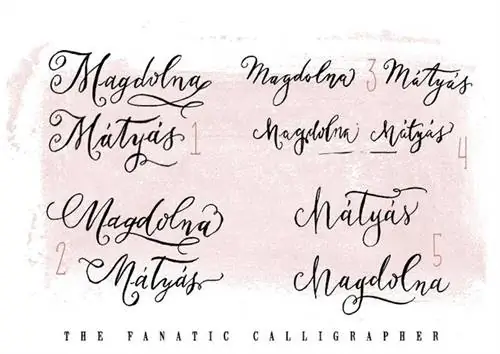 Magdolna
Mátyás 1
Magdolna Mátyás 3
Magdolna Mátyás 4
Magdolna
Mátyás 2
Mátyás
Magdolna 5
THE FANATIC CALLIGRAPHER